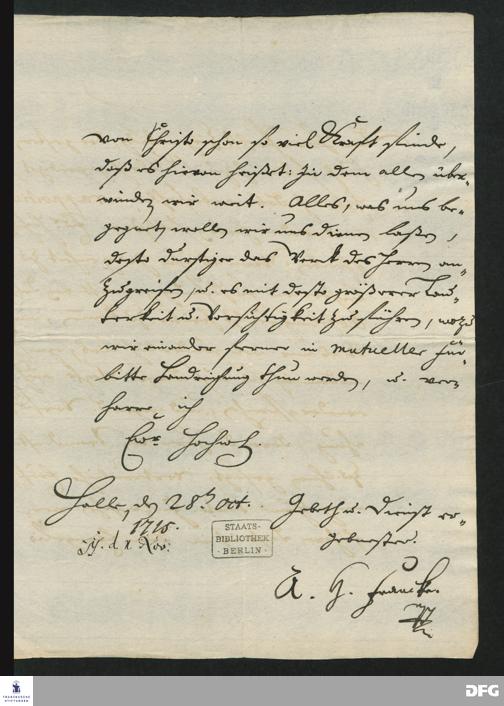 von Christo schon so viel Krafft finde,
daß es hievon heißet: In dem allen über-
winden wir weit. Alles, was uns be-
gegnet, wollen wir uns dienen laßen,
desto durstiger das Werck des Herrn an-
zugreifen, u. es mit desto größerer Lau-
terkeit u. Vorsichtigkeit zu führen, wozu
wir einander ferner in mutueller Für-
bitte Handreichung thun werden, u. ver-
harre ich
Ew. Hochw.
Halle, den 28. Oct.
1715.
d. Nov.
STAATS-
BIBLIOTHEK
· BERLIN ·
Gebeth u. Dienst er-
gebenster.
A. H. Francke.
FRANCKESCHE
STIFTUNGEN
DFG